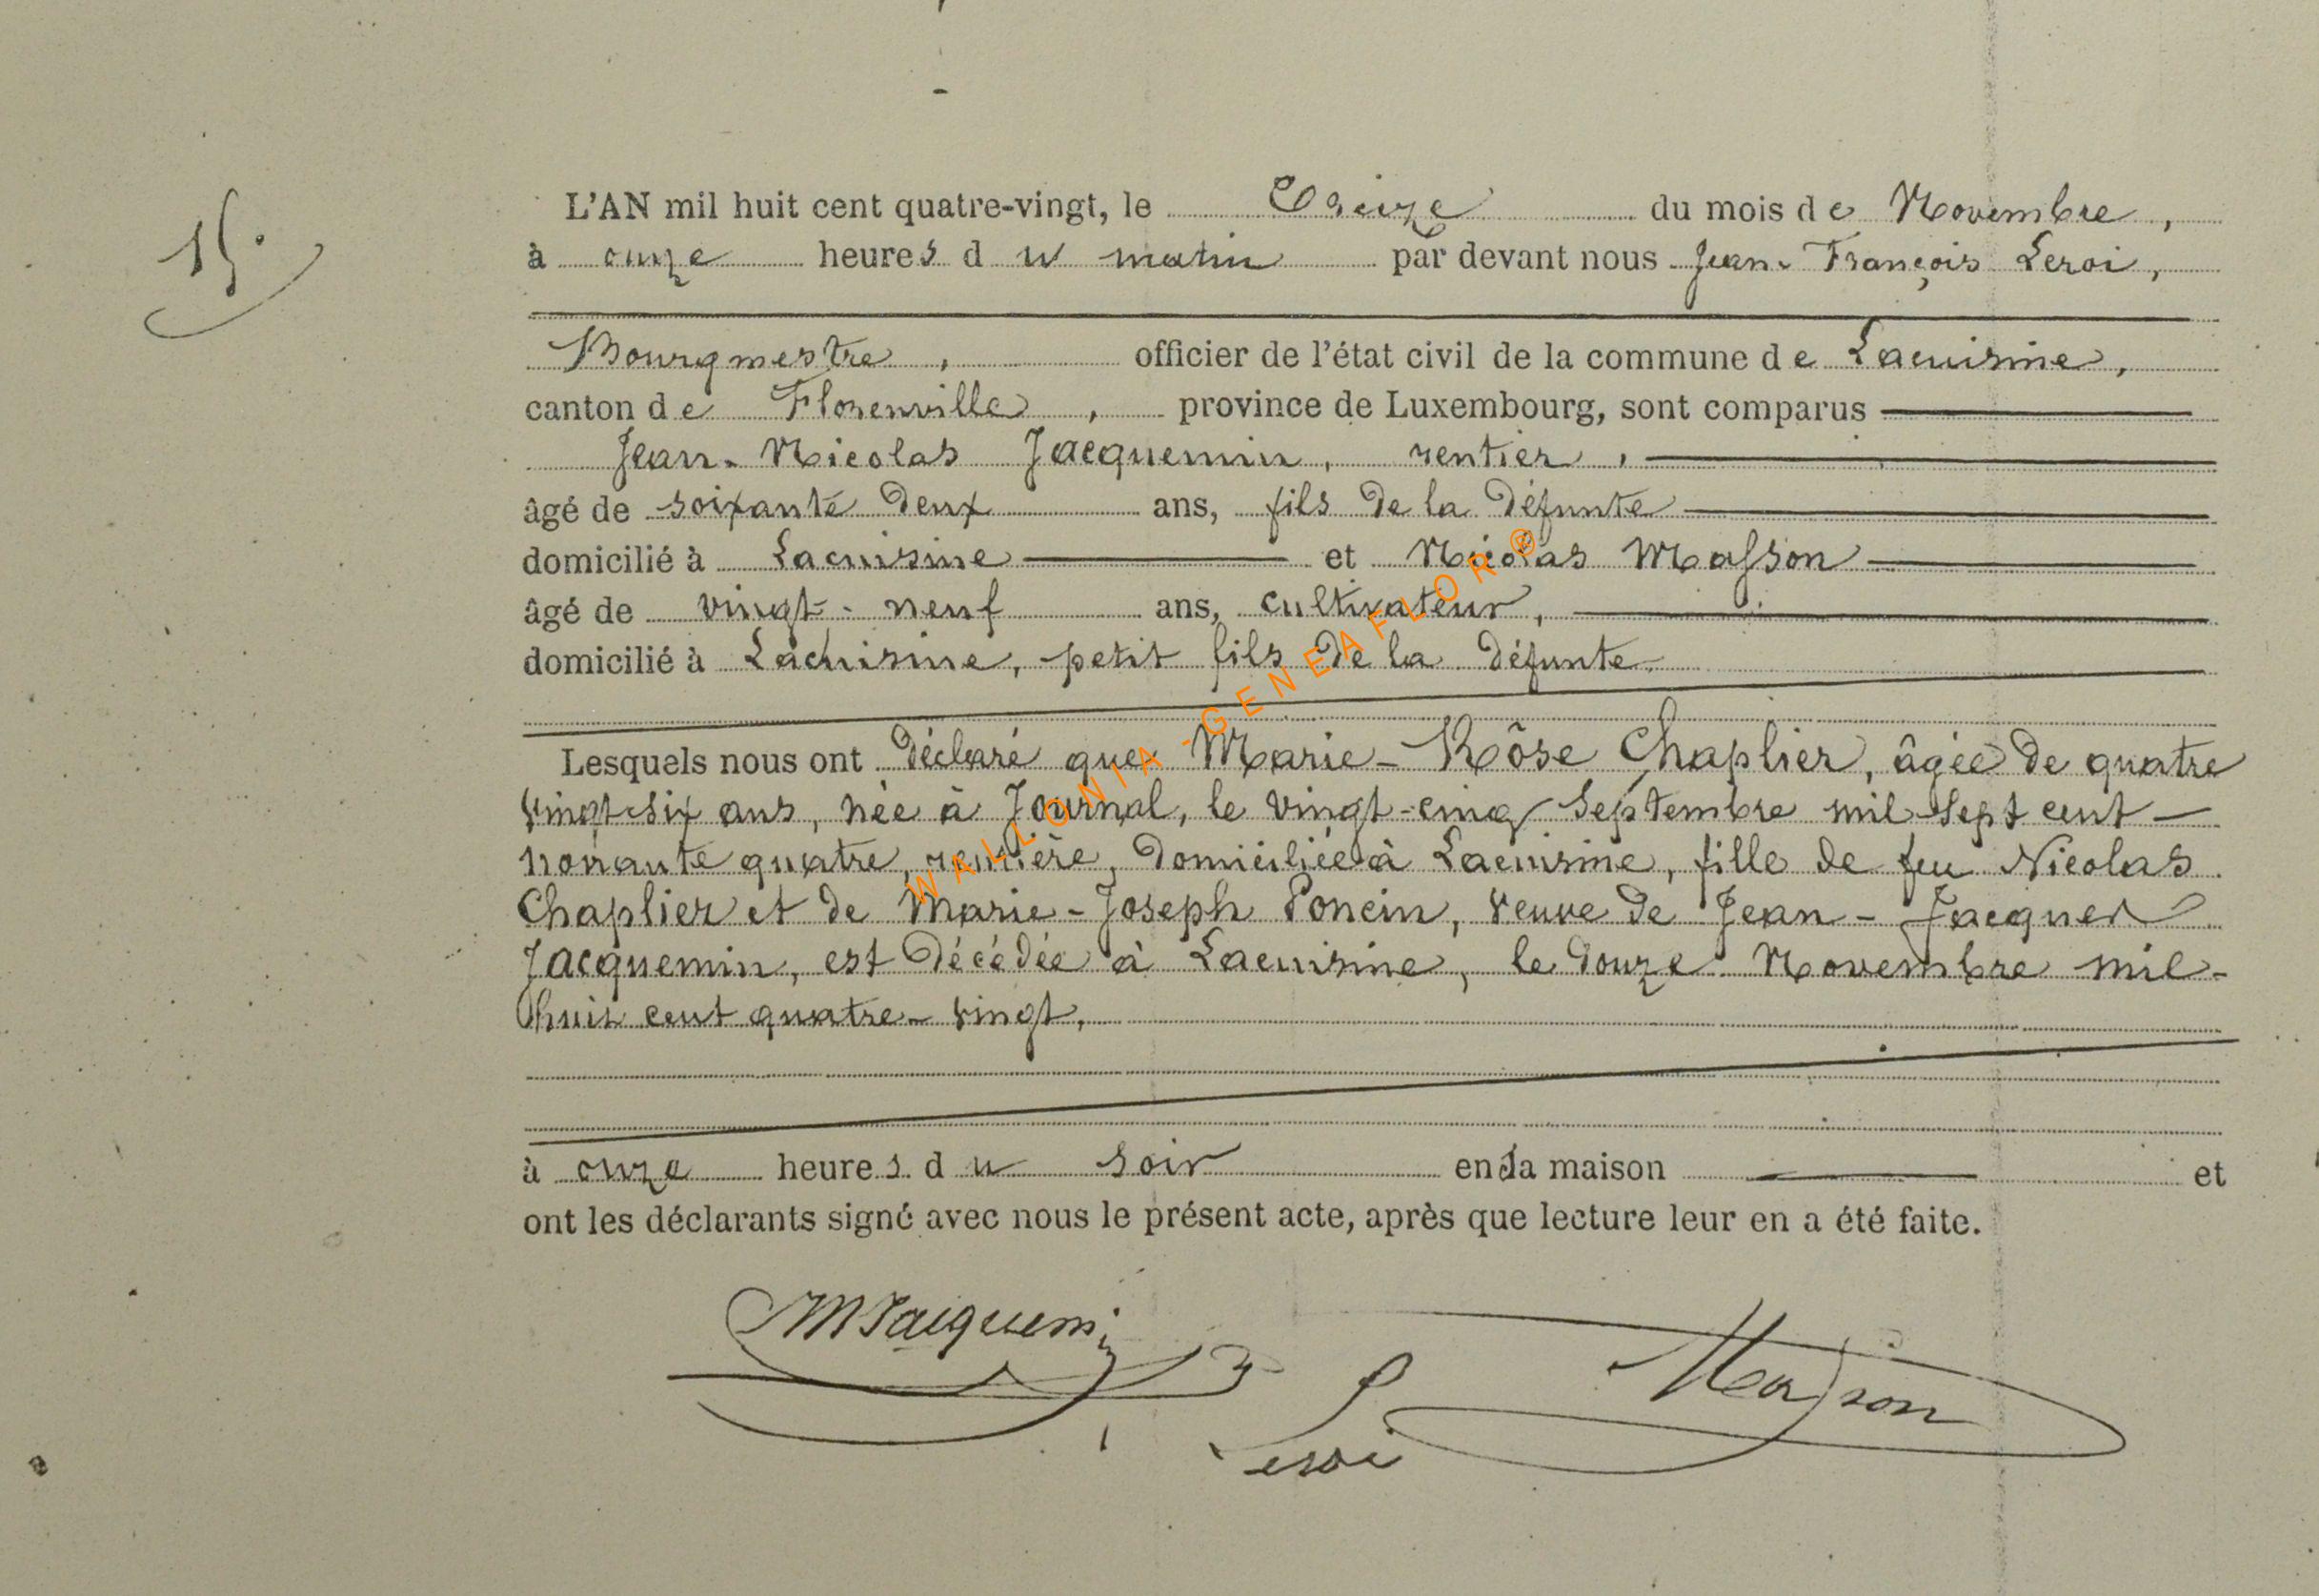 15.
L'AN mil huit cent quatre-vingt, le Treize du mois de Novembre,
à onze heures du matin par devant nous Jean-François Leroi,
Bourgmestre, officier de l'état civil de la commune de Lacuisine,
canton de Florenville, province de Luxembourg, sont comparus
Jean-Nicolas Jacquemin, rentier,
âgé de soixante deux ans, fils de la défunte
domicilié à Lacuisine et Nicolas Masson
âgé de vingt-neuf ans, cultivateur,
domicilié à Lacuisine, petit fils de la défunte.
Lesquels nous ont déclaré que Marie-Rôse Chaplier, âgée de quatre
vingt-six ans, née à Journal, le vingt-cinq Septembre mil sept cent
nonante quatre, rentière, domiciliée à Lacuisine, fille de feu Nicolas
Chaplier et de Marie-Joseph Poncin, veuve de Jean-Jacques
Jacquemin, est décédée à Lacuisine, le douze Novembre mil-
huit cent quatre-vingt,
à onze heures du soir en sa maison et
ont les déclarants signé avec nous le présent acte, après que lecture leur en a été faite.
Jacquemin
Masson
Leroi
WALLONIA - GENEAFLOR ®